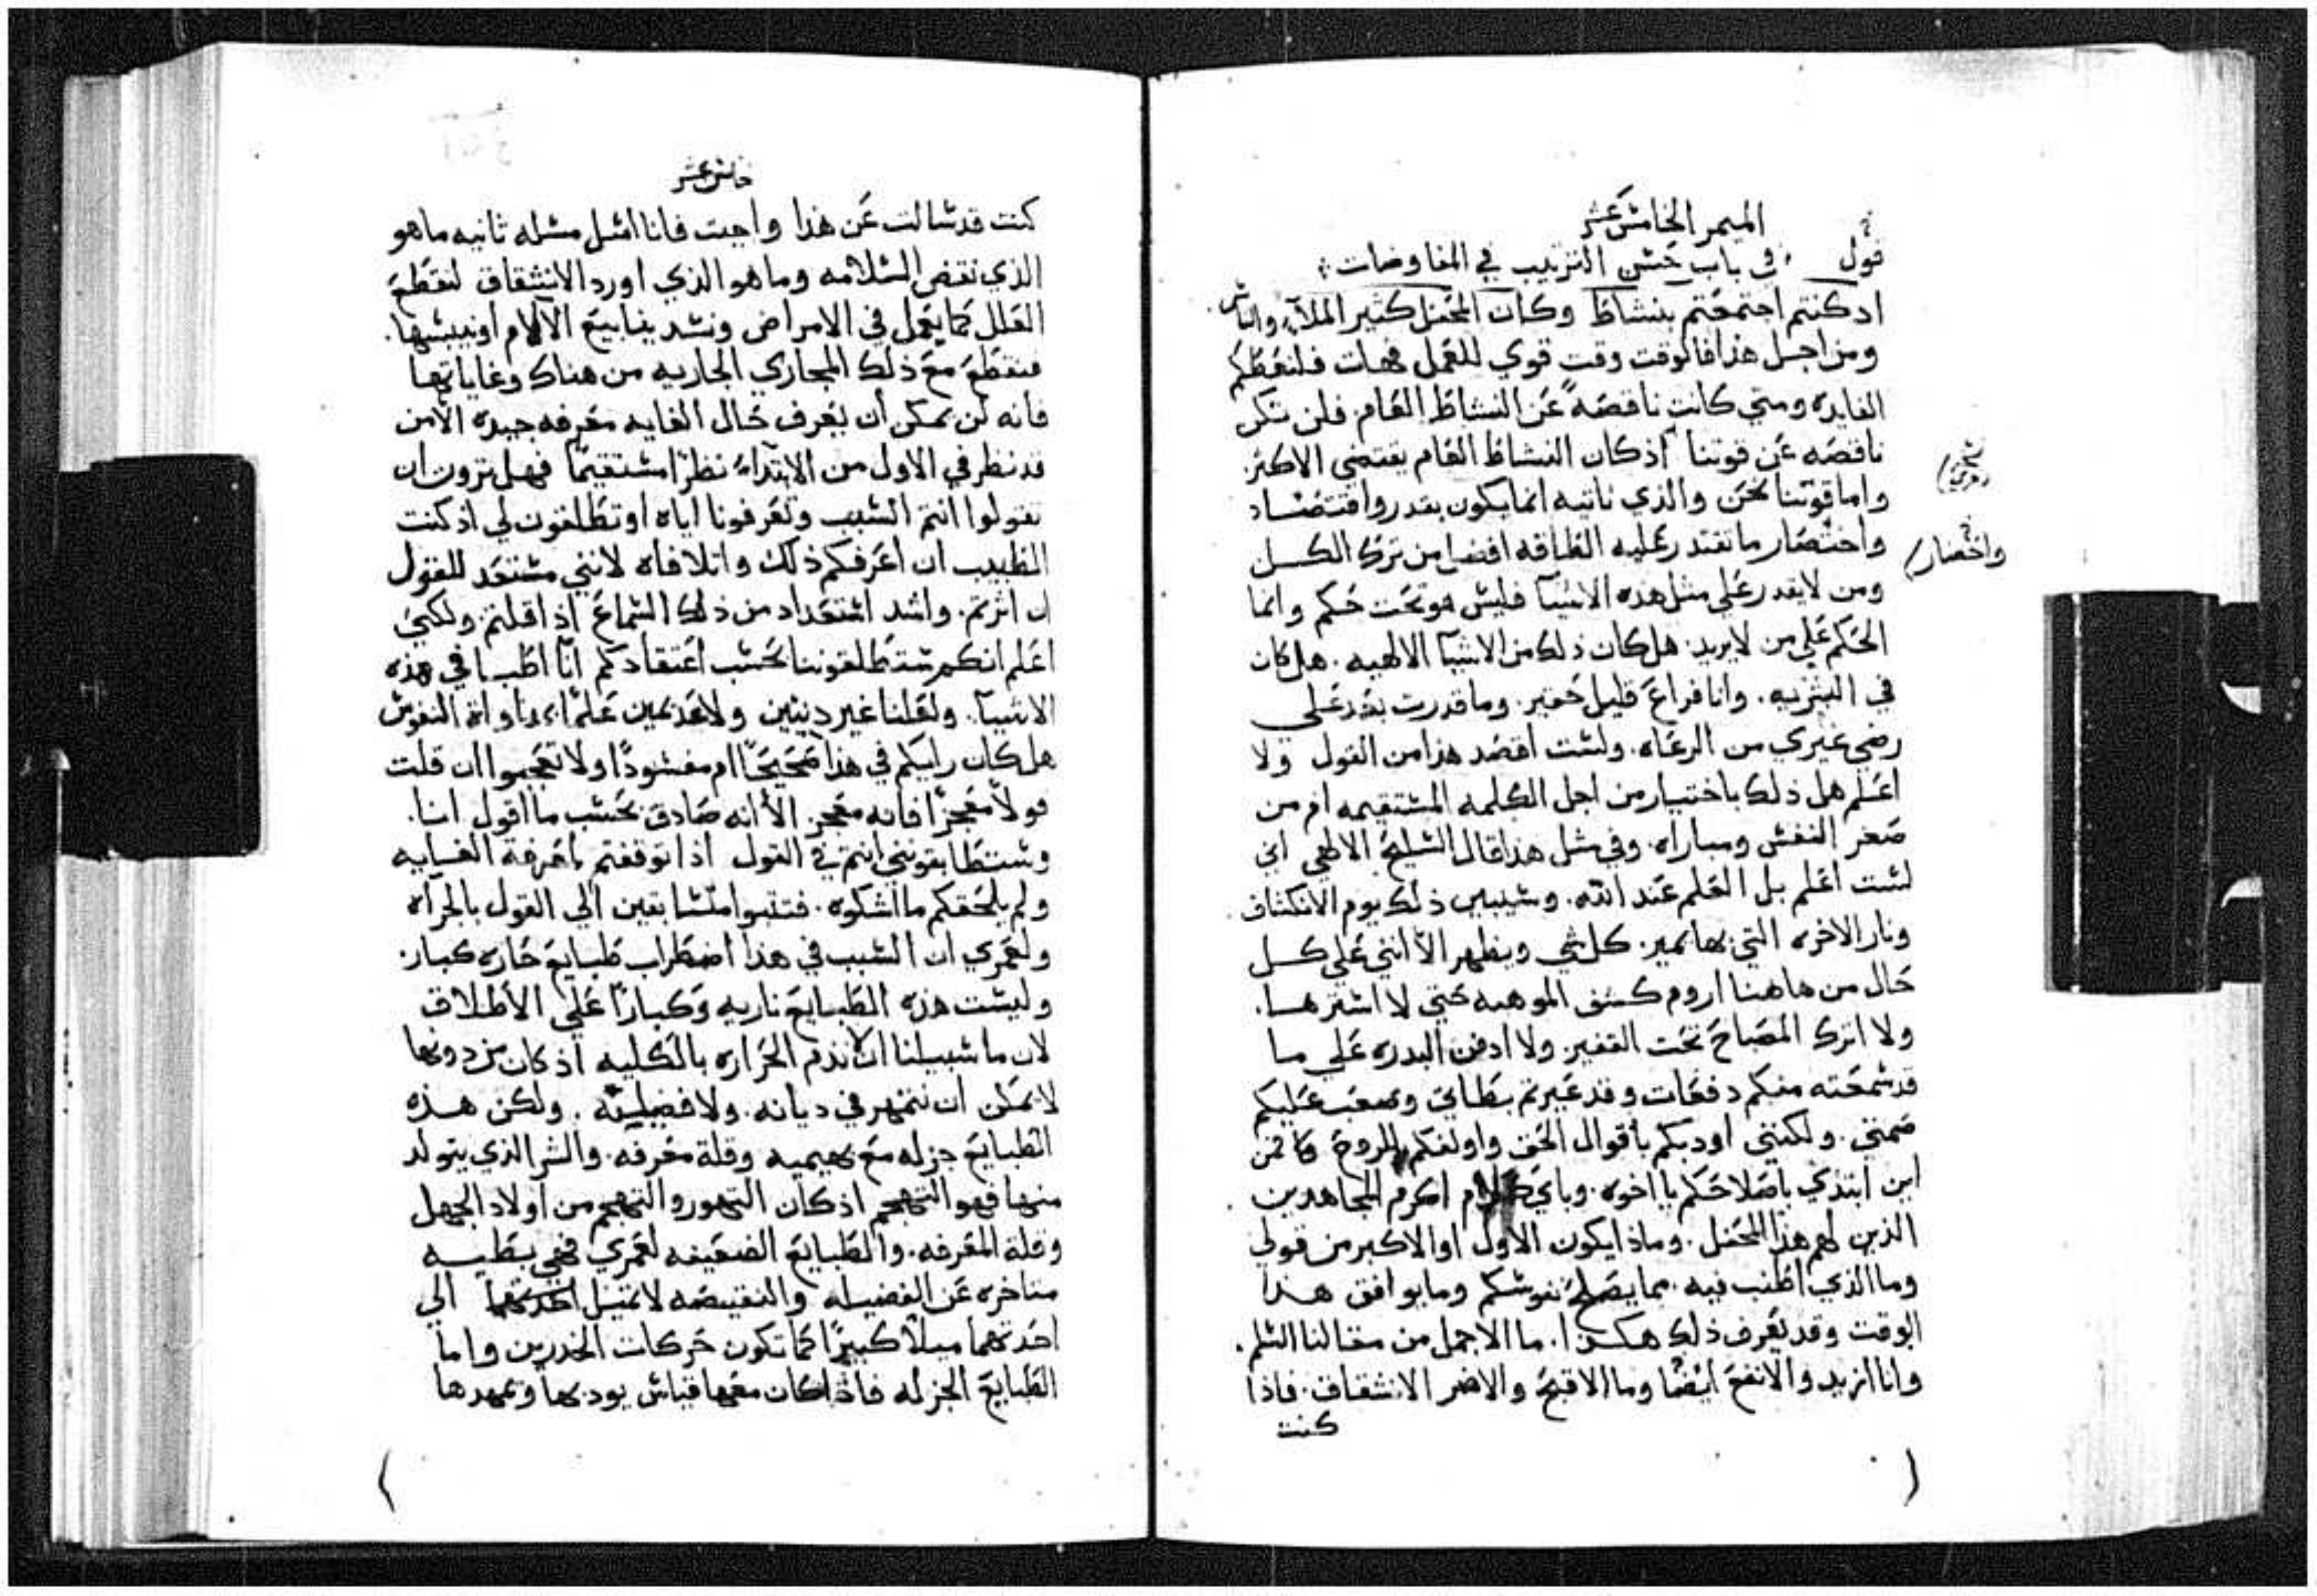 الميمر الخامس عشر
قول في باب حسن الترتيب في المفاوضات
اد كنتم اجتمعتم بنشاط وكان المحفل كثير الملآ والناس
ومن اجل هذا فالوقت وقت قوي للعمل فهات فلنعطكم
الفايده ومتي كانت ناقصةً عن النشاط العام فلن تكن
ناقصه عن قوتنا اذ كان النشاط العام يقتضي الاكثر
واما قوتنا نحن والذي ناتيه انما يكون بقدر واقتصاد
واختصار ما تقتدر عليه الطاقه افضل من ترك الكسل
واختصار
ومن لا يقدر علي مثل هذه الاشيآ فليس هو تحت حكم وانما
الحكم علي من لا يريد. هل كان ذلك من الاشيآ الالهيه. هل كان
في البشريه. وانا فراع قليل حقير. وما قدرت بعد علي
رضي غيري من الرعاه. ولست اقصد هذا من القول ولا
اعلم هل ذلك باختيار من اجل الكلمه المستقيمه ام من
صغر النفس ومباراه. وفي مثل هذا قال السليح الالهي اني
لست اعلم بل العلم عند الله. وسيبين ذلك يوم الانكشاف
ونار الاخره التي بها تميز كل شي ويظهر الا انني علي كل
حال من هاهنا اروم كشف الموهبه حتي لا استرها.
ولا اترك المصباح تحت القفيز ولا ادفن البدره علي ما
قد سمعته منكم دفعات وقد عيرتم بطالتي وصعب عليكم
صمتي. ولكنني اودبكم باقوال الحق واولفكم بالروح فمن
اين ابتدي باصلاحكم يا اخوه. وباي كلام اكرم المجاهدين
الذين لهم هذا المحفل. وماذا يكون الاول او الاكبر من قولي
وما الذي اطنب فيه. مما يصلح نفوسكم وما يوافق هذا
الوقت وقد نعرف ذلك هكذا. ما الاجمل من مقالنا السلم.
وانا ازيد والانفع ايضا وما الاقبح والاضر الانشقاق. فاذا
كنت
خامس عشر
كنت قد سالت عن هذا واجبت فانا اسل مسله ثانيه ما هو
الذي نقض السلامه وما هو الذي اورد الانشقاق لنقطع
العلل كما يعمل في الامراض ونسد ينابيع الآلام او نيبسها.
فنقطع مع ذلك المجاري الجاريه من هناك وغاياتها
فانه لن يمكن ان يعرف حال الغايه معرفه جيده الا من
قد نظر في الاول من الابتداء نظرًا مستقيمًا فهل ترون ان
تقولوا انتم السبب وتعرفونا اياه او تطلقون لي اذ كنت
الطبيب ان اعرفكم ذلك واتلافاه لانني مستعد للقول
ان اثرتم. واشد استعداد من ذلك السماع اذ اقلتم. ولكني
اعلم انكم ستطلقوننا بحسب اعتقادكم انا اطبا في هذه
الاشيآ. ولعلنا غير دنيين ولا عديمين علمًا بمداواة النفوس
هل كان رايكم في هذا صحيحًا ام مفسودًا ولا تعجبوا ان قلت
قولا معجزًا فانه معجز الا انه صادق بحسب ما اقول انا.
وستطابقونني انتم في القول اذا توقفتم لمعرفة الغايه
ولم يلحقكم ما اشكوه. فتثبوا متسابقين الي القول بالجرآه
ولعمري ان السبب في هذا اضطراب طبايع حاره كبار.
وليست هذه الطبايع ناريه وكبارًا علي الاطلاق
لان ما سبيلنا ان نذم الحراره بالكليه اذ كان من دونها
لا يمكن ان نتمهر في ديانه. ولا فضيله. ولكن هذه
الطبايع جزله مع بهيميه وقلة معرفه. والشر الذي يتولد
منها فهو التهجم اذ كان التهور والتهجم من اولاد الجهل
وقلة المعرفه. والطبايع الضعيفه لعمري فهي بطيه
متاخره عن الفضيله والنقيصه لا تميل الي
احدتهما ميلا كبيرًا كما تكون حركات الخدرين واما
الطبايع الجزله فاذا كان معها قياس يودبها ويمهدها